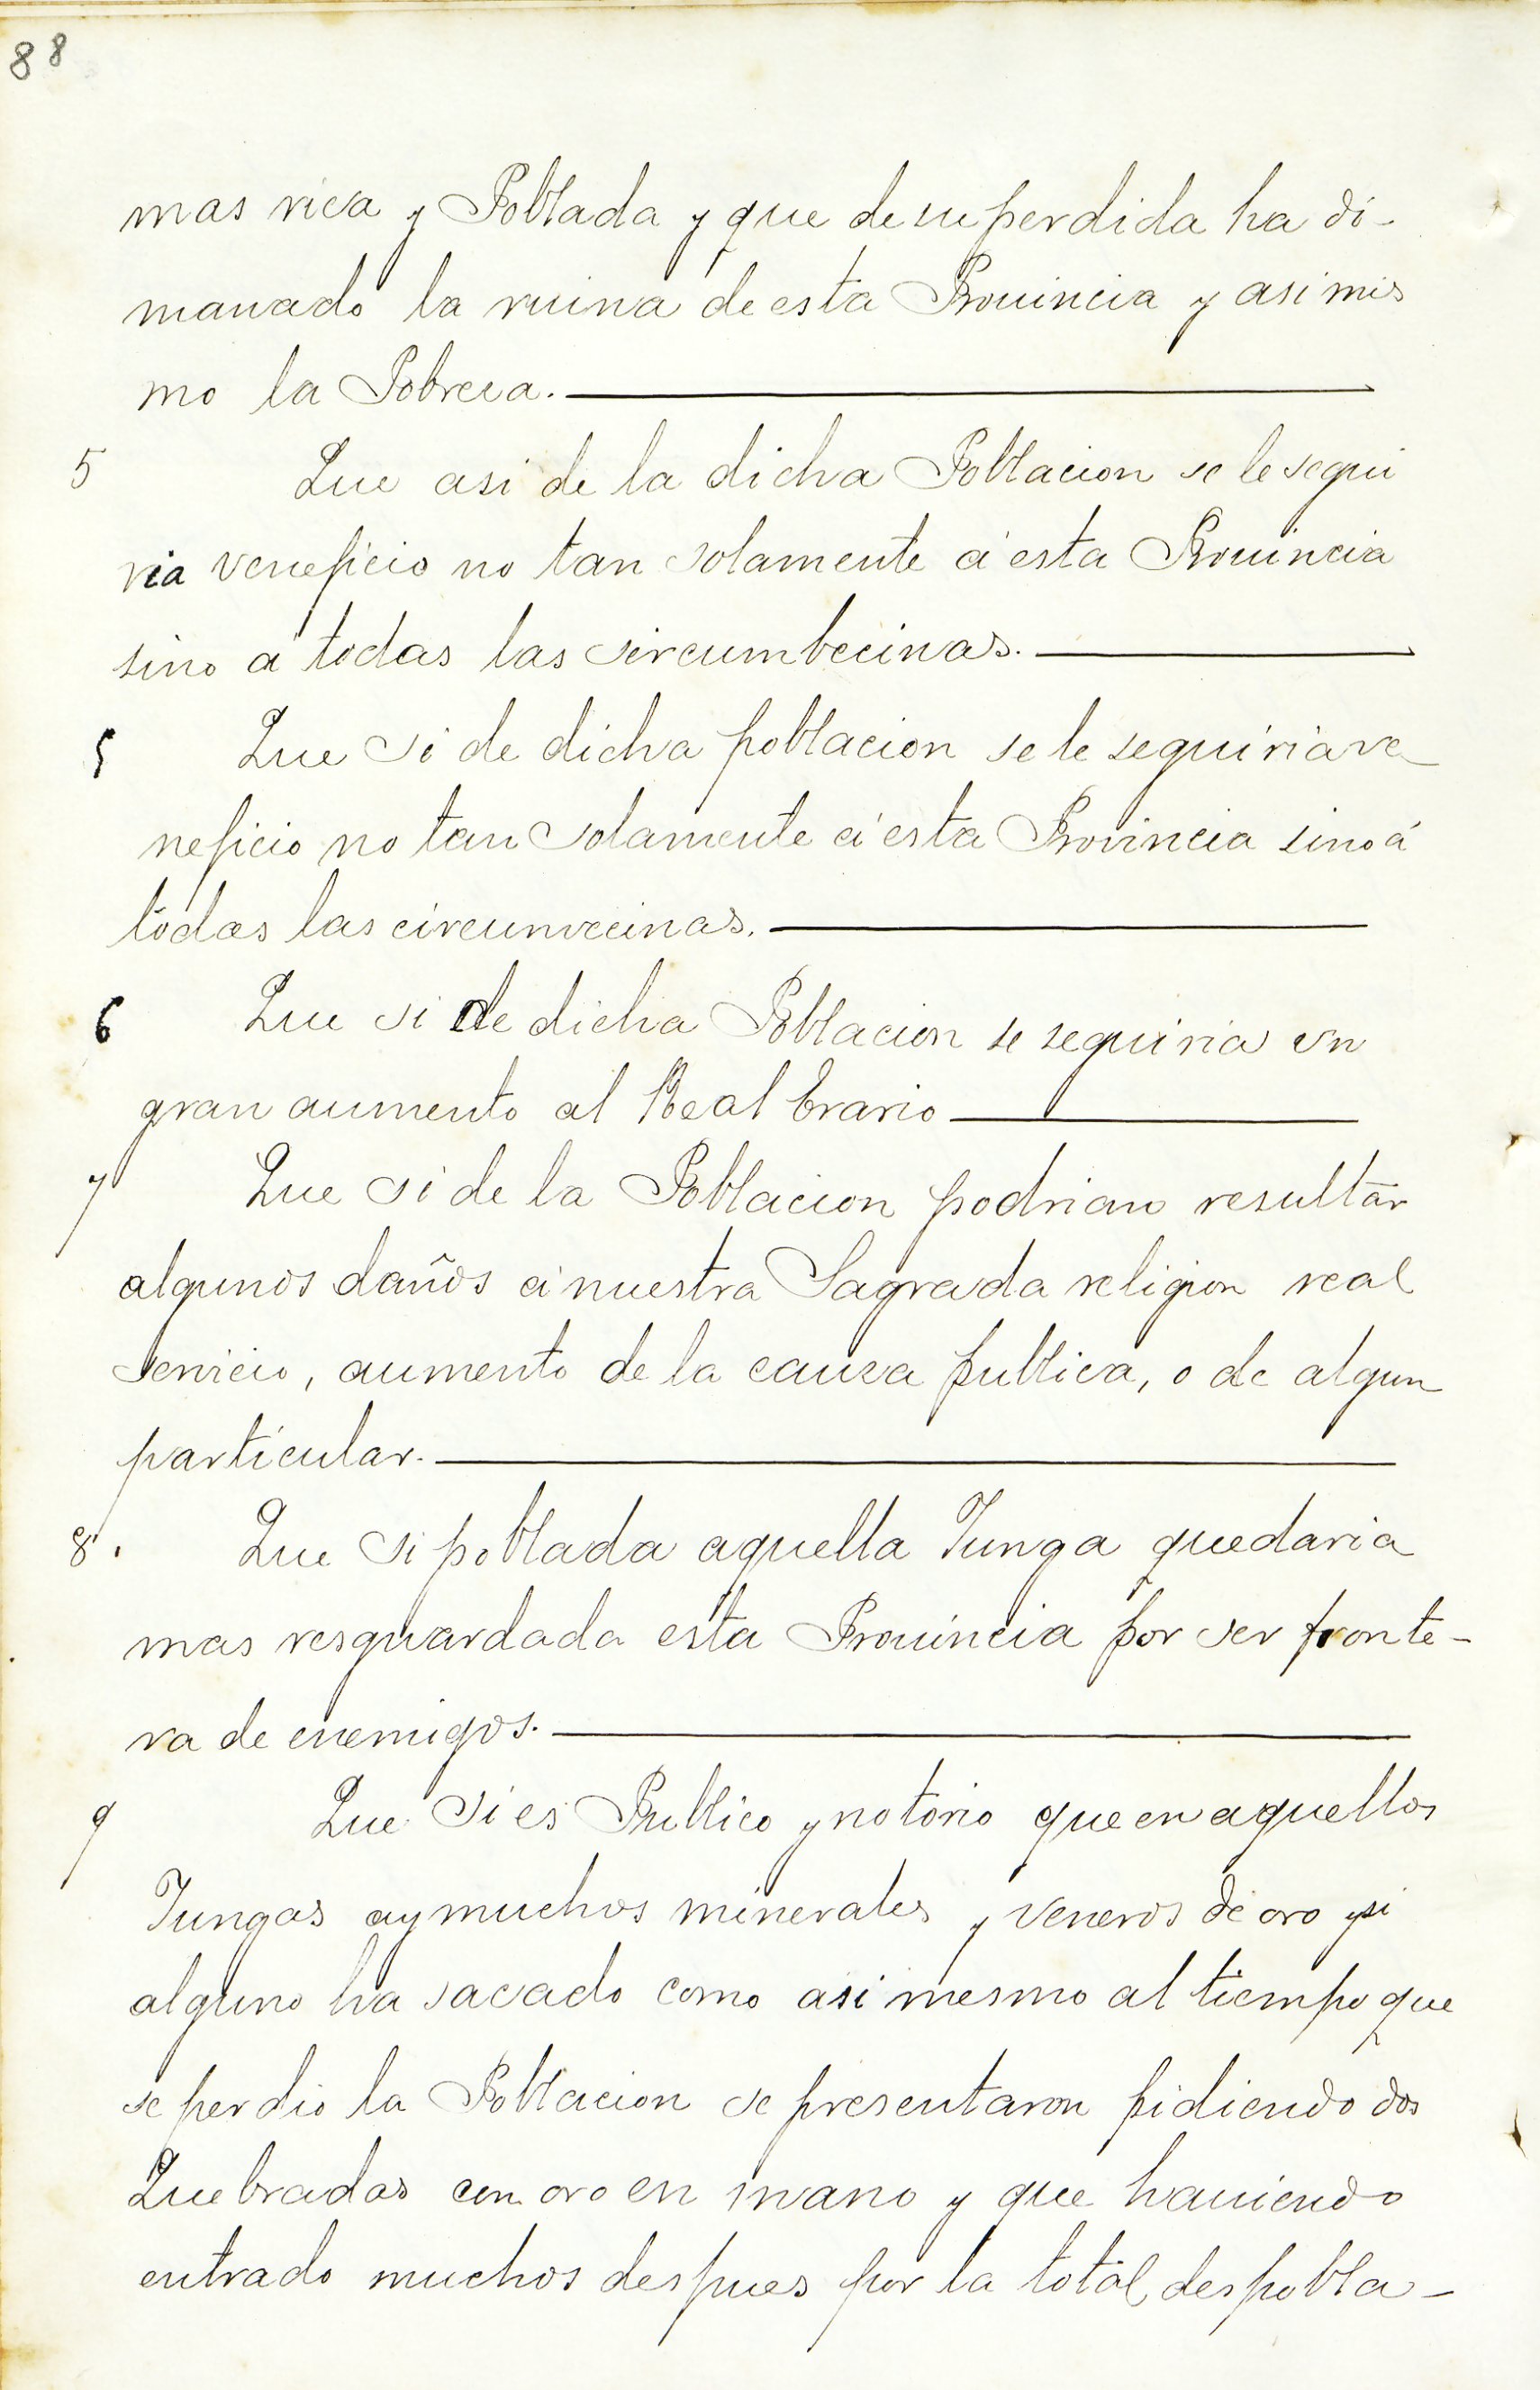 88
mas rica y Poblada y que de su perdida ha di-
manado la ruina de esta Prouincia y asi mis
mo la Pobreza.
5 Que asi de la dicha Poblacion se le segui
ria veneficio no tan solamente á esta Prouincia
sino á todas las sircumbecinas.
5 Que si de dicha poblacion se le seguiria ve
neficio no tan solamente á esta Provincia sino á
todas las circumvecinas.
6 Que si de dicha Poblacion se seguiria un
gran aumento al Real Erario
7 Que si de la Poblacion podrian resultar
algunos daños á nuestra Sagrada religion real
servicio, aumento de la causa publica, o de algun
particular.
8. Que si poblada aquella Yunga quedaria
mas resguardada esta Prouincia por ser fronte-
ra de enemigos.
9 Que si es Publico y notorio que en aquellos
Yungas ay muchos minerales y veneros de oro y si
alguno ha sacado como asi mesmo al tiempo que
se perdio la Poblacion se presentaron pidiendo dos
Quebradas con oro en mano y que hauiendo
entrado muchos despues por la total despobla-